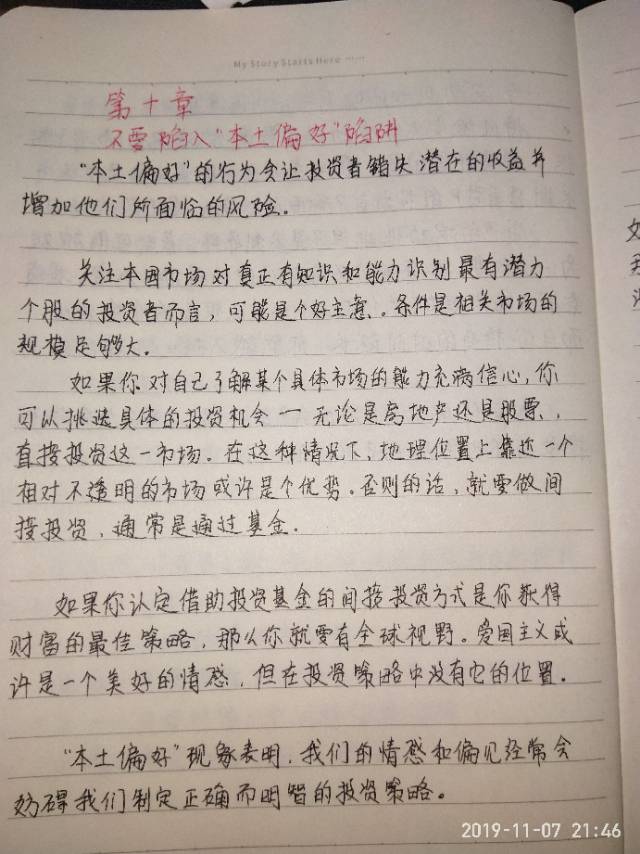 My Story Starts Here ······
第十章
不要陷入“本土偏好”陷阱
“本土偏好”的行为会让投资者错失潜在的收益并
增加他们所面临的风险.
关注本国市场对真正有知识和能力识别最有潜力
个股的投资者而言，可能是个好主意。条件是相关市场的
规模足够大.
如果你对自己了解某个具体市场的能力充满信心,你
可以挑选具体的投资机会 — 无论是房地产还是股票,
直接投资这一市场。在这种情况下,地理位置上靠近一个
相对不透明的市场或许是个优势。否则的话,就要做间
接投资,通常是通过基金.
如果你认定借助投资基金的间接投资方式是你获得
财富的最佳策略,那么你就要有全球视野。爱国主义或
许是一个美好的情感,但在投资策略中没有它的位置.
“本土偏好”现象表明,我们的情感和偏见经常会
妨碍我们制定正确而明智的投资策略。
2019-11-07 21:46